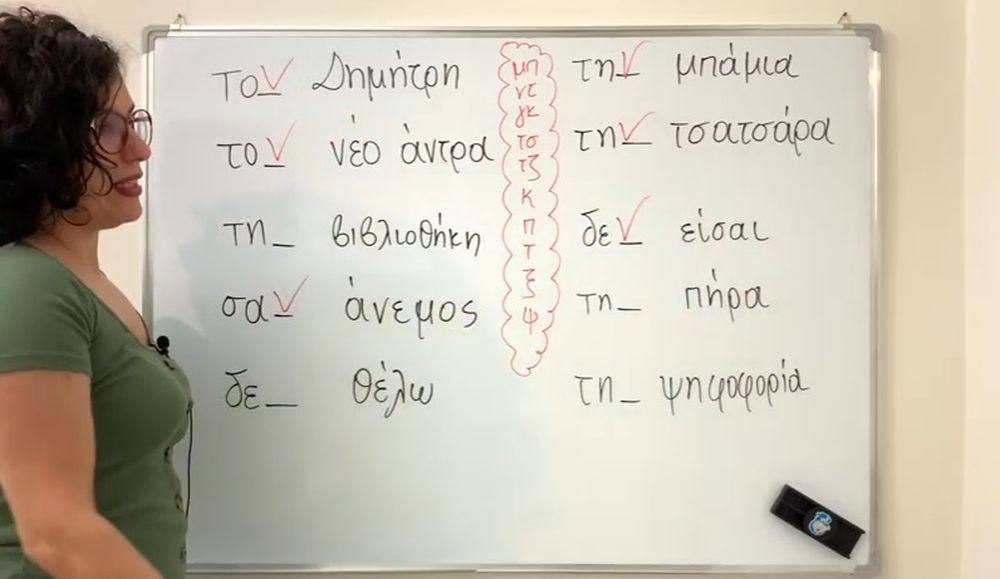 τον Δημήτρη
τον νέο άντρα
τη_ βιβλιοθήκη
σαν άνεμος
δε_ θέλω
μπ
ντ
γκ
τσ
τζ
κ
π
τ
ξ
ψ
την μπάμια
την τσατσάρα
δεν είσαι
τη_ πήρα
τη_ ψηφοφορία